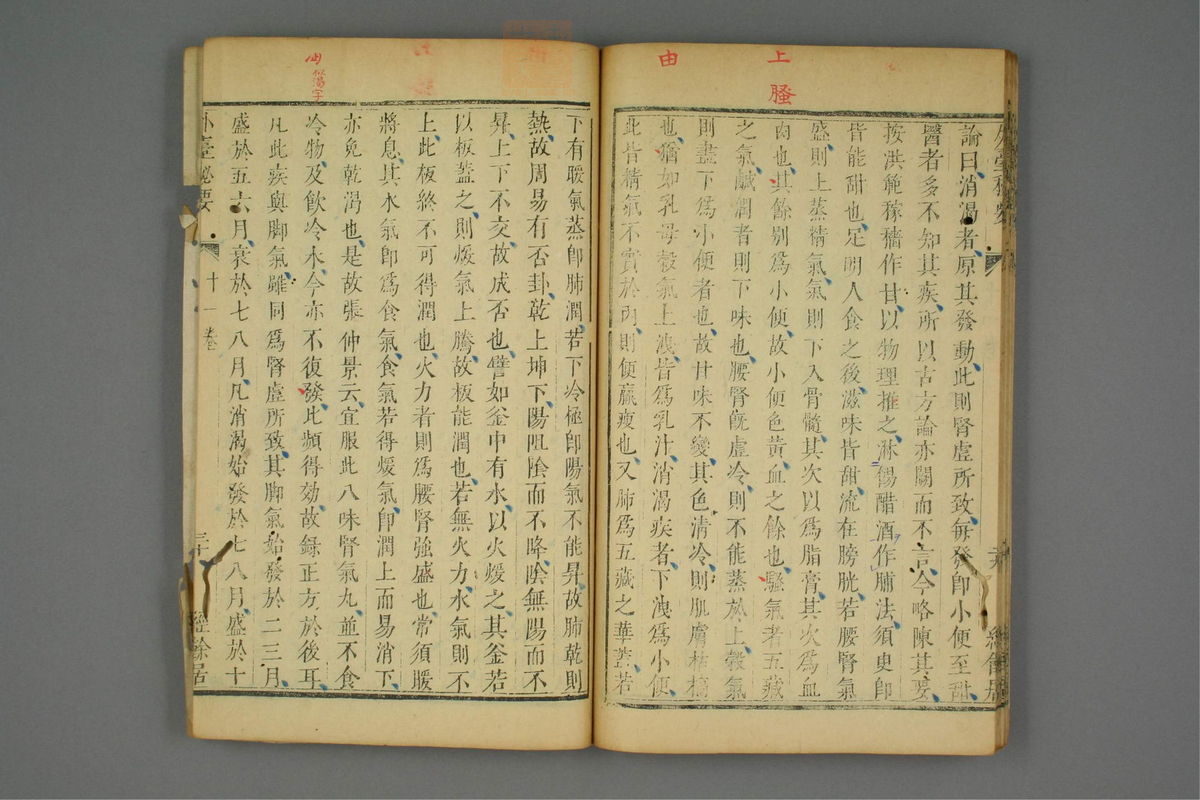 上
騷
由
論曰消渴者原其發動此則腎虛所致每發卽小便至甜
醫者多不知其疾所以古方論亦闕而不言今略陳其要
按洪範稼穡作甘以物理推之淋餳醋酒作脯法須臾卽
皆能甜也足明人食之後滋味皆甜流在膀胱若腰腎氣
盛則上蒸精氣氣則下入骨髓其次以爲脂膏其次爲血
肉也其餘別爲小便故小便色黃血之餘也騷氣者五藏
之氣鹹潤者則下味也腰腎旣虛冷則不能蒸於上穀氣
則盡下爲小便者也故甘味不變其色淸冷則肌膚枯槁
也猶如乳母穀氣上洩皆爲乳汁消渴疾者下洩爲小便
此皆精氣不實於內則便羸瘦也又肺爲五藏之華蓋若
下有暖氣蒸卽肺潤若下冷極卽陽氣不能昇故肺乾則
熱故周易有否卦乾上坤下陽阻陰而不降陰無陽而不
昇上下不交故成否也譬如釜中有水以火煖之其釜若
以板蓋之則煖氣上騰故板能潤也若無火力水氣則不
上此板終不可得潤也火力者則爲腰腎強盛也常須暖
將息其水氣卽爲食氣食氣若得煖氣卽潤上而易消下
亦免乾渴也是故張仲景云宜服此八味腎氣丸並不食
冷物及飮冷水今亦不復發比頻得効故錄正方於後耳
凡此疾與脚氣雖同爲腎虛所致其脚氣始發於二三月
盛於五六月衰於七八月凡消渴始發於七八月盛於十
外臺秘要
十一卷
經餘居